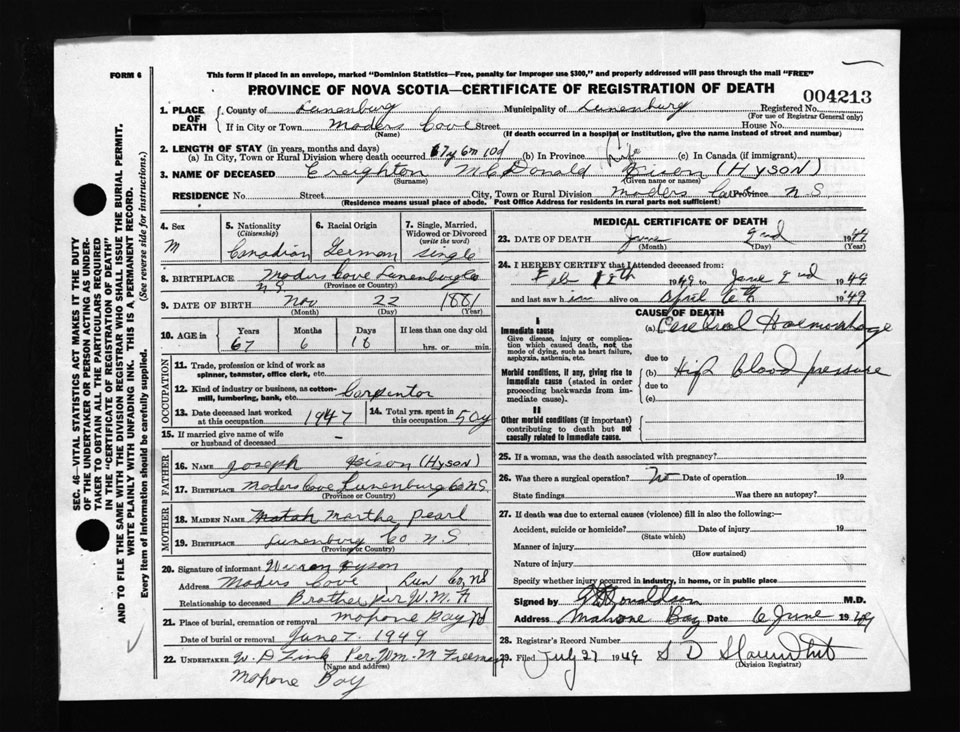 FORM 6
This form if placed in an envelope, marked "Dominion Statistics—Free, penalty for improper use $300," and properly addressed will pass through the mail "FREE"
PROVINCE OF NOVA SCOTIA—CERTIFICATE OF REGISTRATION OF DEATH
004213
1. PLACE OF DEATH
County of Lunenburg Municipality of Lunenburg Registered No.
(For use of Registrar General only)
If in City or Town Maders Cove Street House No.
(Name) (If death occurred in a hospital or institution, give the name instead of street and number)
2. LENGTH OF STAY (in years, months and days)
(a) In City, Town or Rural Division where death occurred 67y 6m 10d (b) In Province Life (c) In Canada (if immigrant)
3. NAME OF DECEASED Creighton McDonald Eison (HYSON)
(Surname) (Given name or names)
RESIDENCE No. Street City, Town or Rural Division Maders Cove Province N.S
(Residence means usual place of abode. Post Office Address for residents in rural parts not sufficient)
4. Sex
M
5. Nationality
(Citizenship)
Canadian
6. Racial Origin
German
7. Single, Married, Widowed or Divorced
(write the word)
Single
8. BIRTHPLACE Maders Cove Lunenburg Co
N.S. (Province or Country)
9. DATE OF BIRTH Nov 22 1881
(Month) (Day) (Year)
10. AGE in
Years Months Days If less than one day old
67 6 18 hrs. or min.
OCCUPATION
11. Trade, profession or kind of work as
spinner, teamster, office clerk, etc.
12. Kind of industry or business, as cotton-
mill, lumbering, bank, etc. Carpentor
13. Date deceased last worked
at this occupation 1947
14. Total yrs. spent in
this occupation 50y
15. If married give name of wife
or husband of deceased –
FATHER
16. NAME Joseph Eison (Hyson)
17. BIRTHPLACE Maders Cove Lunenburg Co N.S.
(Province or Country)
MOTHER
18. MAIDEN NAME Matah Martha Pearl
19. BIRTHPLACE Lunenburg Co N.S
(Province or Country)
20. Signature of informant Warren Hyson
Address Maders Cove Lun Co, NS
Relationship to deceased Brother per W.M.F
21. Place of burial, cremation or removal Mahone Bay NS
Date of burial or removal June 7. 1949
22. UNDERTAKER W. D Zink Per. Wm. M Freeman
(Name and address)
Mahone Bay
MEDICAL CERTIFICATE OF DEATH
23. DATE OF DEATH June 2nd 1949
(Month) (Day)
24. I HEREBY CERTIFY that I attended deceased from:
Feb 18th 1949 to June 2nd 1949
and last saw him alive on April 6th 1949
CAUSE OF DEATH
I
Immediate cause
Give disease, injury or complica-
tion which caused death, not the
mode of dying, such as heart failure,
asphyxia, asthenia, etc.
(a) Cerebral Haemorrhage
due to
Morbid conditions, if any, giving rise to
immediate cause (stated in order
proceeding backwards from im-
mediate cause).
(b) High blood pressure
due to
(c)
II
Other morbid conditions (if important)
contributing to death but not
causally related to immediate cause.
25. If a woman, was the death associated with pregnancy?
26. Was there a surgical operation? No Date of operation 19
State findings Was there an autopsy?
27. If death was due to external causes (violence) fill in also the following:—
Accident, suicide or homicide? Date of injury 19
(State which)
Manner of injury
(How sustained)
Nature of injury
Specify whether injury occurred in industry, in home, or in public place
Signed by Donaldson M.D.
Address Mahone Bay Date 6 June 1949
28. Registrar's Record Number
29. Filed July 27 1949 S D
(Division Registrar)
SEC. 46—VITAL STATISTICS ACT MAKES IT THE DUTY
OF THE UNDERTAKER OR PERSON ACTING AS UNDER-
TAKER TO OBTAIN ALL THE PARTICULARS REQUIRED
IN THE "CERTIFICATE OF REGISTRATION OF DEATH"
AND TO FILE THE SAME WITH THE DIVISION REGISTRAR WHO SHALL ISSUE THE BURIAL PERMIT.
WRITE PLAINLY WITH UNFADING INK. THIS IS A PERMANENT RECORD.
Every item of information should be carefully supplied. (See reverse side for instructions.)